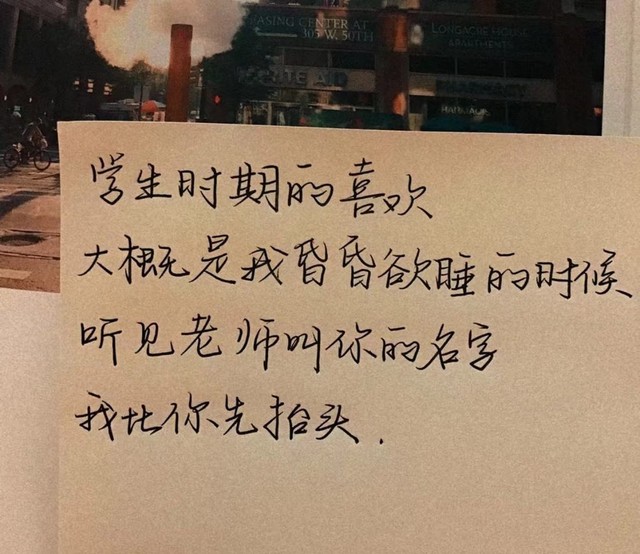 ASING CENTER AT
305 W. 50TH
LONGACRE HOUSE
APARTMENTS
RITE AID
PHARMACY
学生时期的喜欢
大概是我昏昏欲睡的时候
听见老师叫你的名字
我比你先抬头.